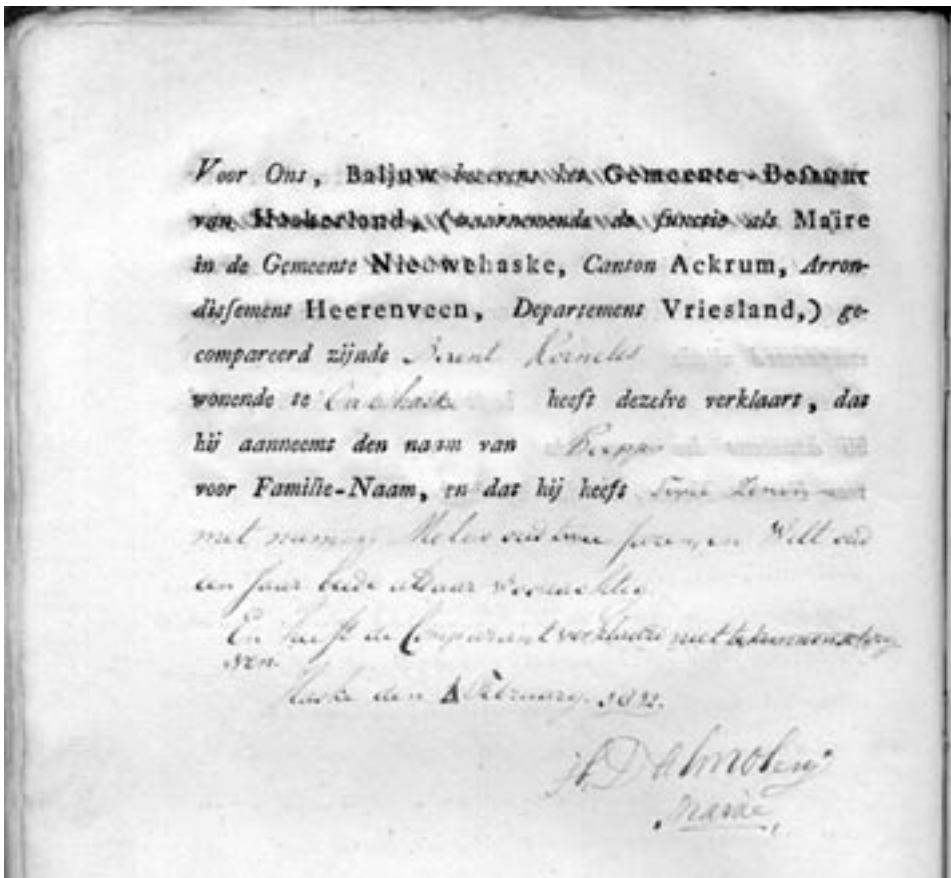 Voor Ons, Baljuw beevens het Gemeente-Bestuur
van Haskerland, (waarnemende de functie als Maire
in de Gemeente Nieuwehaske, Canton Ackrum, Arron-
dissement Heerenveen, Departement Vriesland,) ge-
compareerd zijnde Berent
wonende te heeft dezelve verklaart, dat
hij aanneemt den naam van
voor Familie-Naam, en dat hij heeft
met namen oud twee jaren, en Wilt oud
een jaar beide aldaar woonachtig.
En heeft de Comparant verklaard niet te kunnen schry
ven.
Haske den February 1812.
Dalmolen
Maire